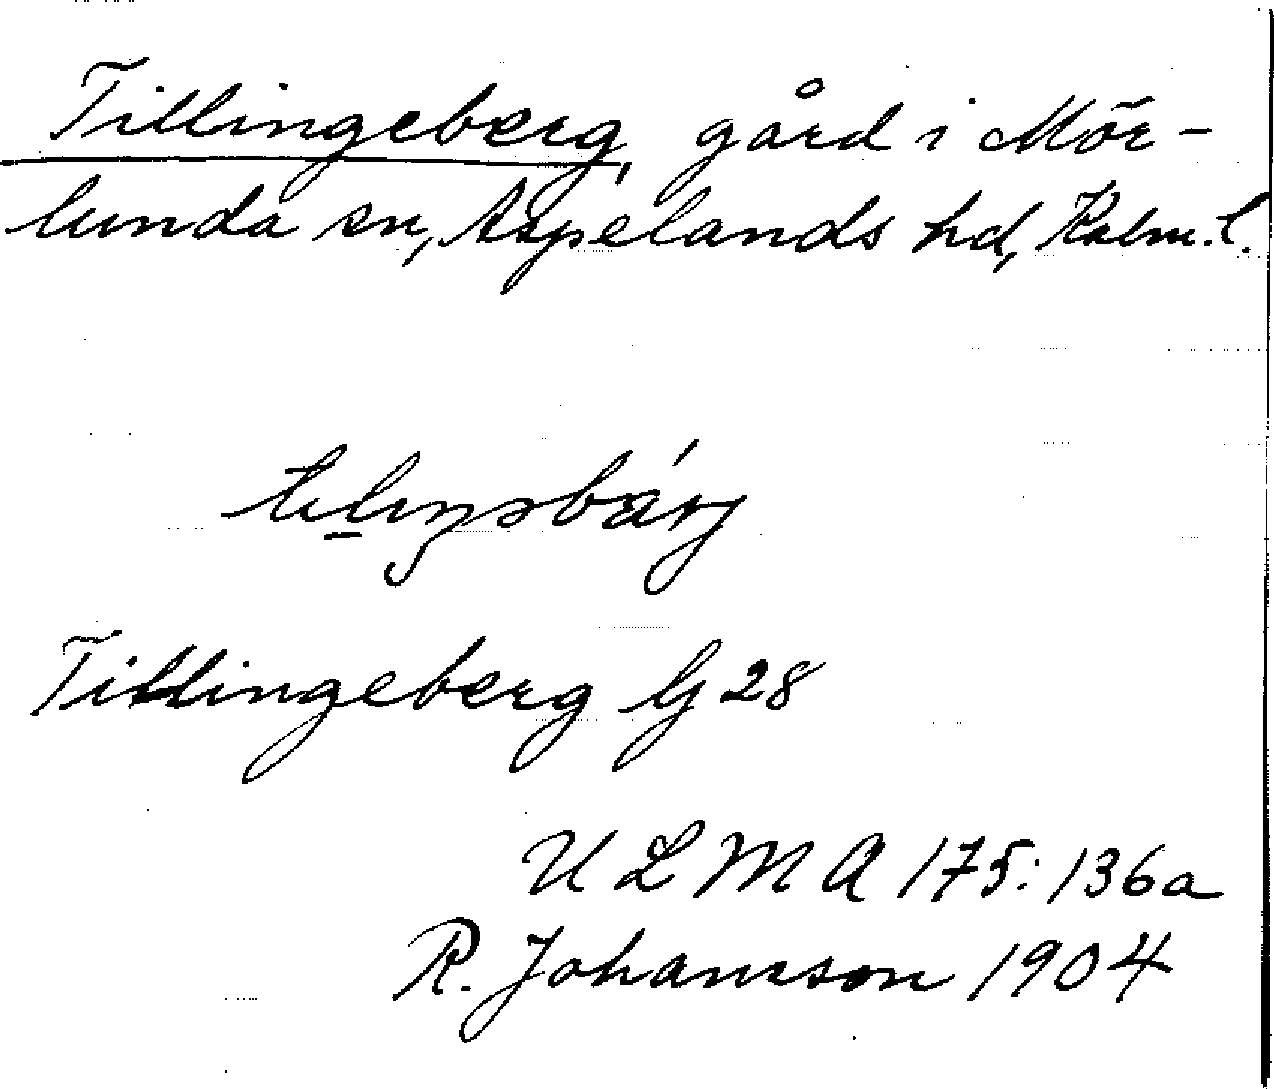 Tillingeberg, gård i Mör-
lunda sn, Aspelands hd, Kalm. l.
Tillingeberg G 28
ULMA 175:136a
R. Johansson 1904